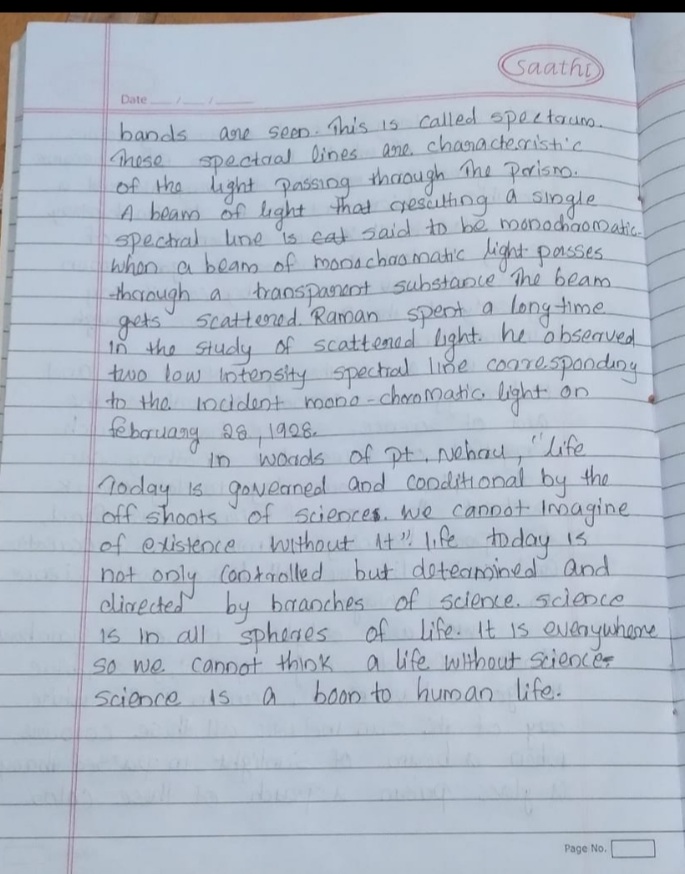 Saathi
Date ___/___/___
bands are seen. This is called spectrum.
These spectral lines are characteristic
of the light passing through The Prism.
A beam of light that resulting a single
spectral line is said to be monochromatic.
when a beam of monochromatic light passes
through a transparent substance The beam
gets scattered. Raman spent a long time
in the study of scattered light. he observed
two low intensity spectral line corresponding
to the incident mono-chromatic light on
february 28, 1928.
in words of pt. Nehru, "life
Today is governed and conditional by the
off shoots of sciences. we cannot imagine
of existence without it". life today is
not only controlled but determined and
directed by branches of science. science
is in all spheres of life. It is everywhere
so we cannot think a life without science.
science is a boon to human life.
Page No.